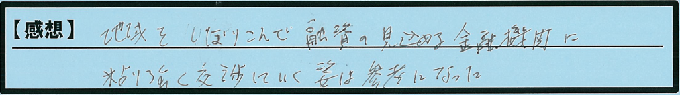 【感想】 地域をしぼりこんで融資の見込める金融機関に
粘り強く交渉していく姿は参考になった